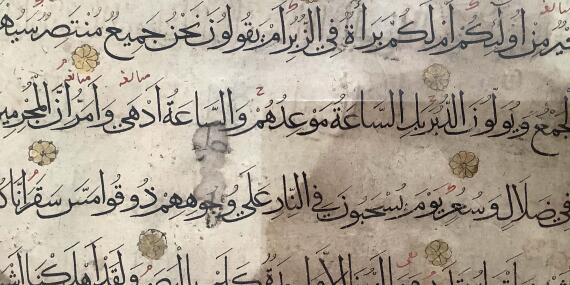 خير من اولئكم ام لكم براءة في الزبر ام يقولون نحن جميع منتصر سيهزم
الجمع ويولون الدبر بل الساعة موعدهم والساعة ادهى وامر ان المجرمين
في ضلال وسعر يوم يسحبون في النار على وجوههم ذوقوا مس سقر انا كل
كلمح بالبصر ولقد اهلكنا